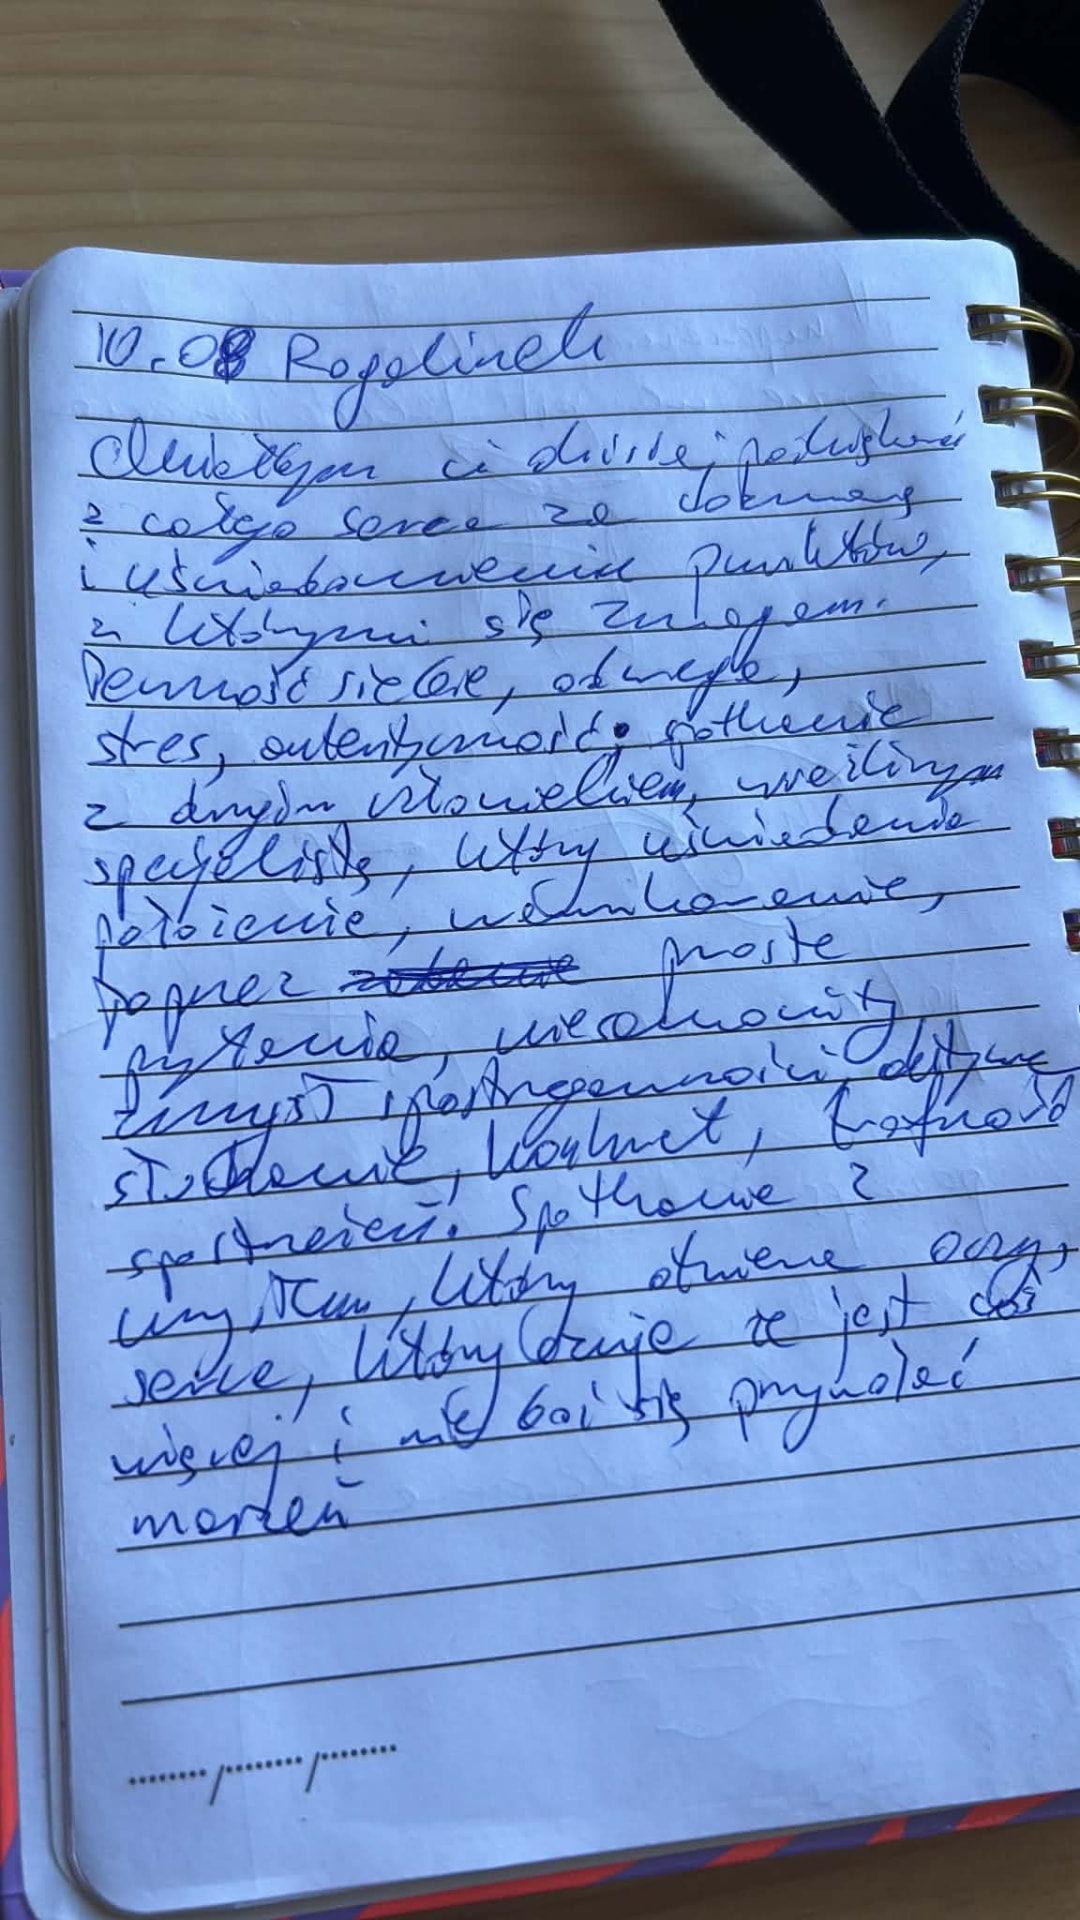 10.08 Rogalinek
Chciałbym ci dzisiaj podziękować
z całego serca za
i uświadomienie punktów,
z którymi się zmagam.
Pewność siebie, odwaga,
stres, autentyczność, spotkanie
z drugim człowiekiem, wrażliwym
specjalistą, który uświadamia
położenie, uwarunkowanie,
Poprzez proste
pytania, niesamowity
zmysł spostrzegawczości, aktywne
słuchanie, konkret, trafność
spostrzeżeń. Spotkanie z
umysłem, który otwiera oczy,
serce, który czuje że jest coś
więcej i nie boi się przywołać
marzeń